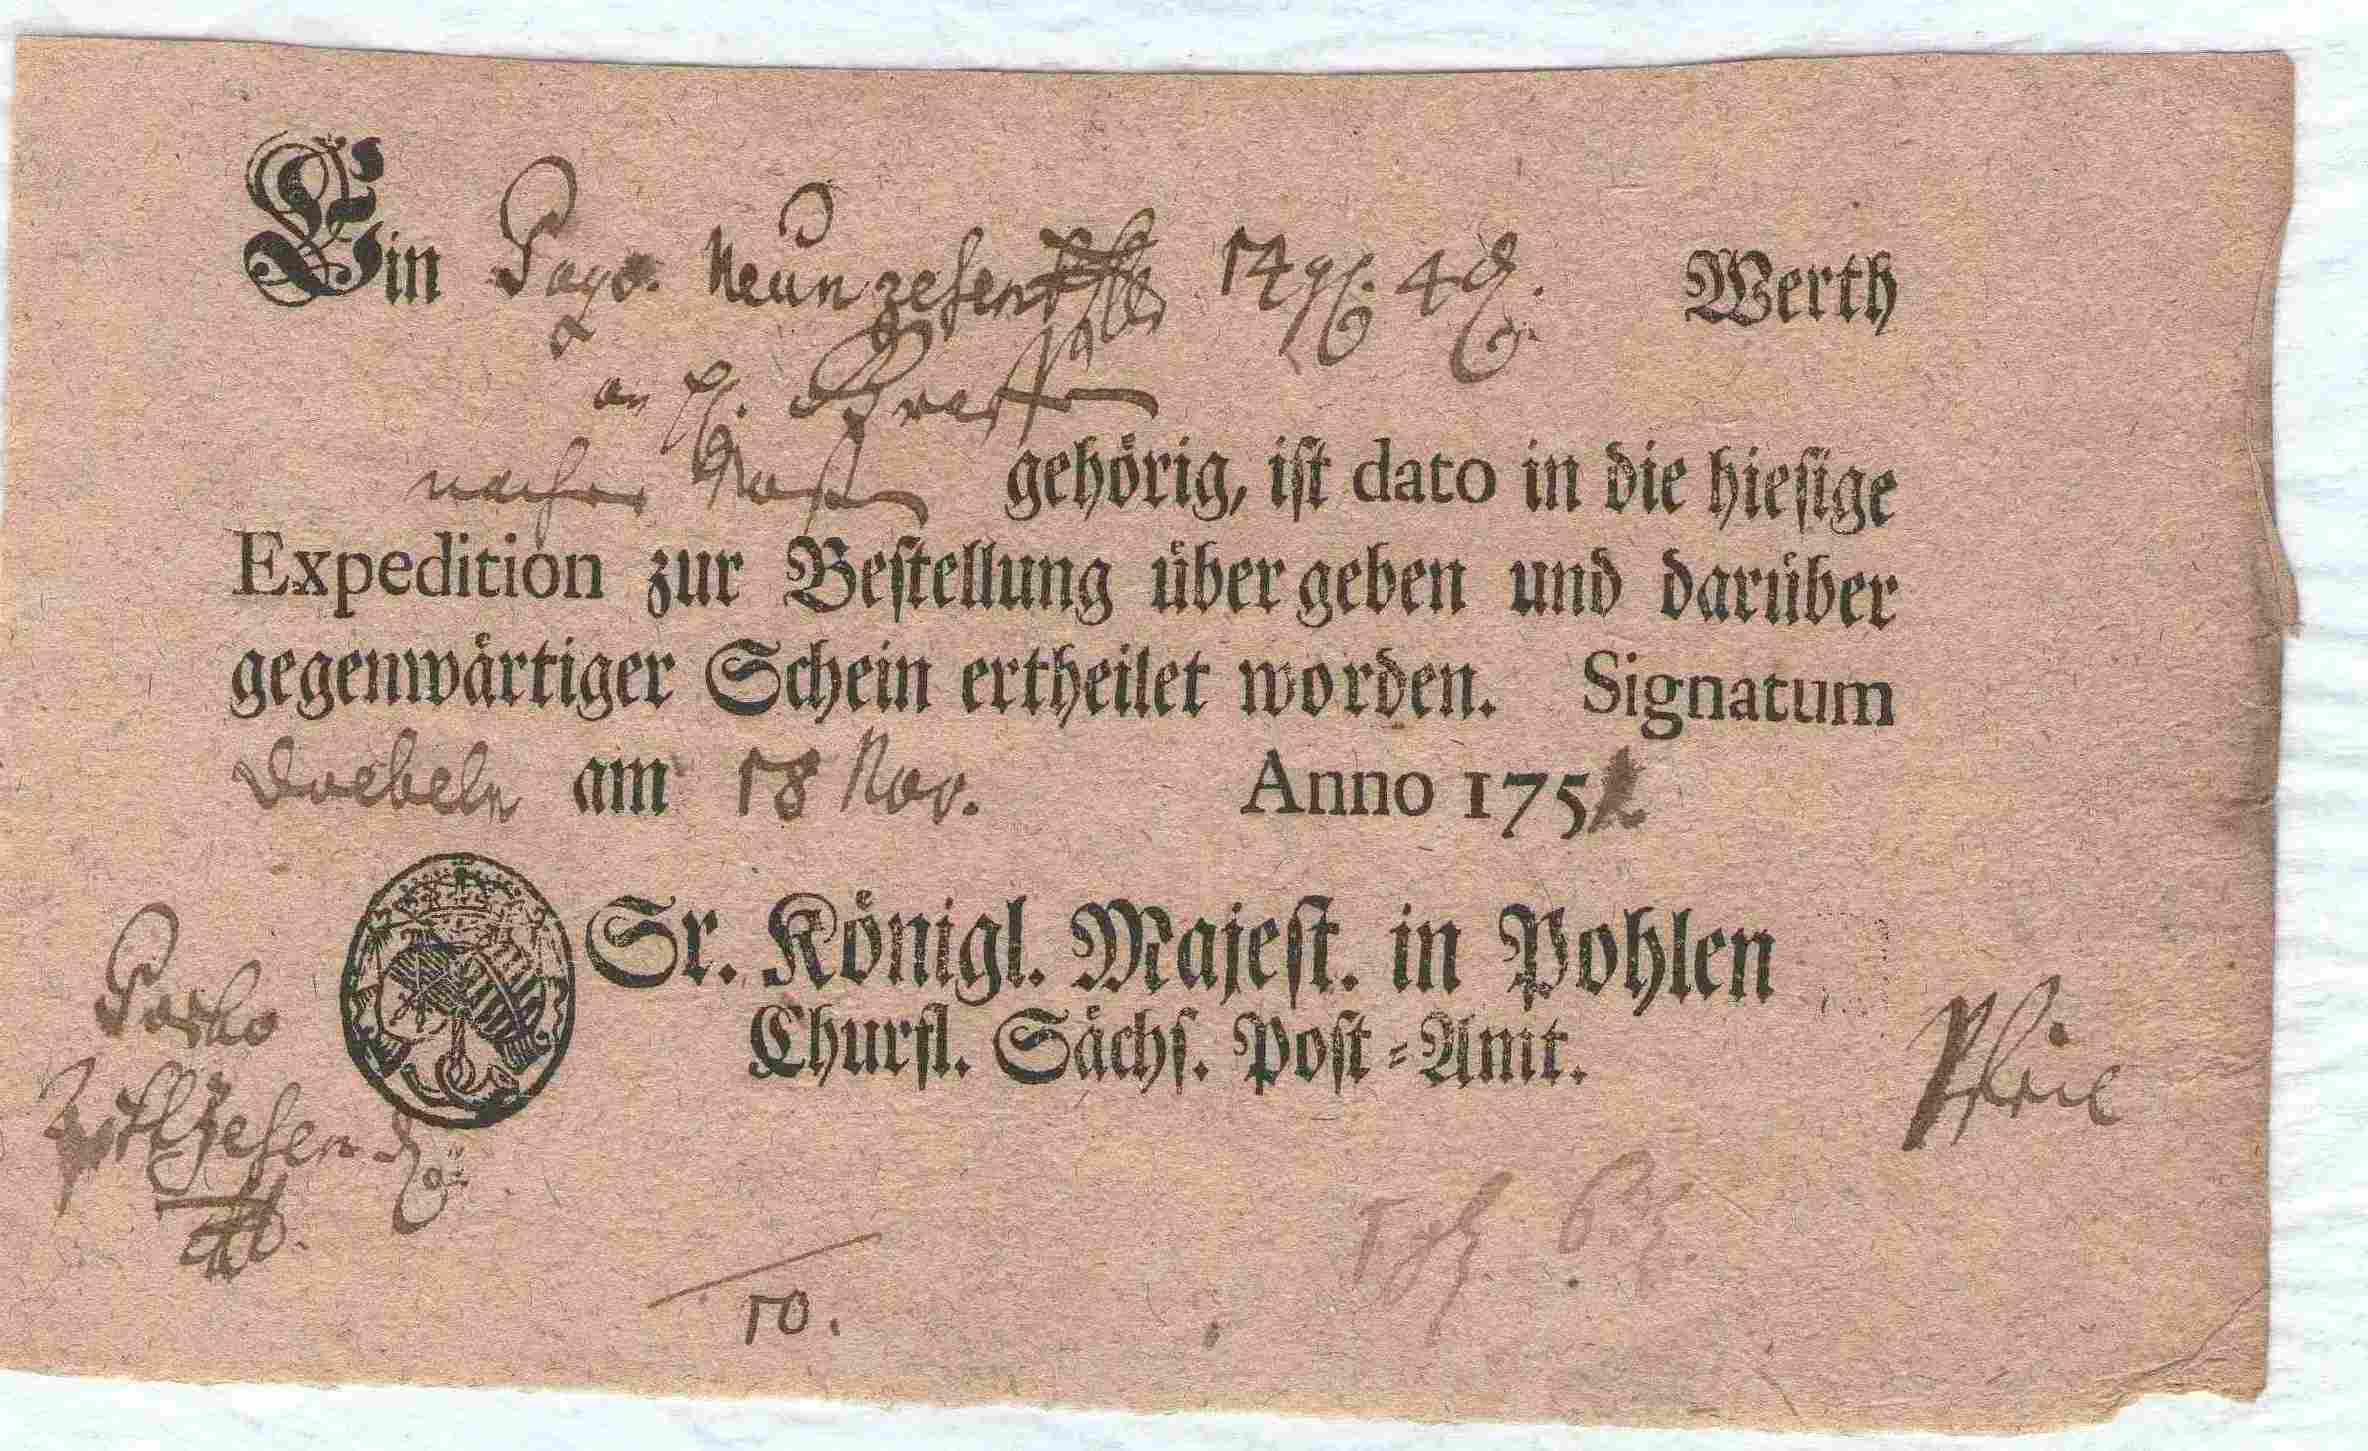 Ein Paqv. Neunzehen Thlr 14 gl. 4 d. Werth
an H.
nacher gehörig, ist dato in die hiesige
Expedition zur Bestellung übergeben und darüber
gegenwärtiger Schein ertheilet worden. Signatum
Doebeln am 18 Nov. Anno 175
Sr. Königl. Majest. in Pohlen
Churfl. Sächs. Post-Amt.
Pfeil
Porto
10.